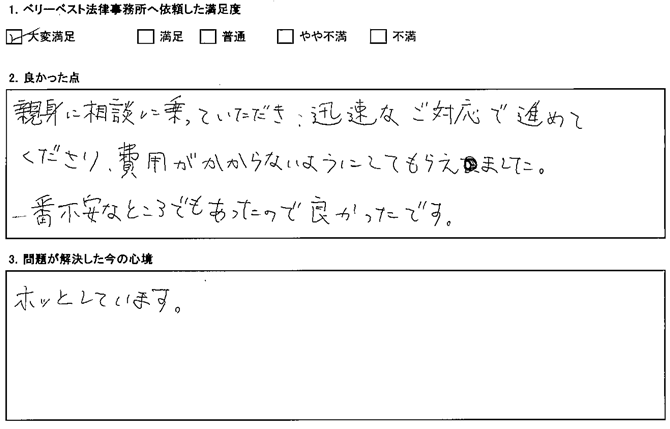 1. ベリーベスト法律事務所へ依頼した満足度
☑大変満足 □満足 □普通 □やや不満 □不満
2. 良かった点
親身に相談に乗っていただき、迅速なご対応で進めて
くださり、費用がかからないようにしてもらえました。
一番不安なところでもあったので良かったです。
3. 問題が解決した今の心境
ホッとしています。